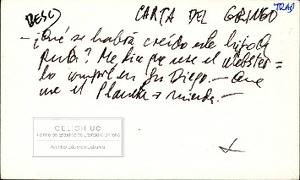 DESC)
CARTA DEL GRINGO
TRAD
— ¿Qué se habrá creído este hijo de
puta? Me dice que use el Webster =
lo compré en San Diego. — Que
use el Planeta
CELICH UC
Centro de Estudios de Literatura Chilena
Archivo